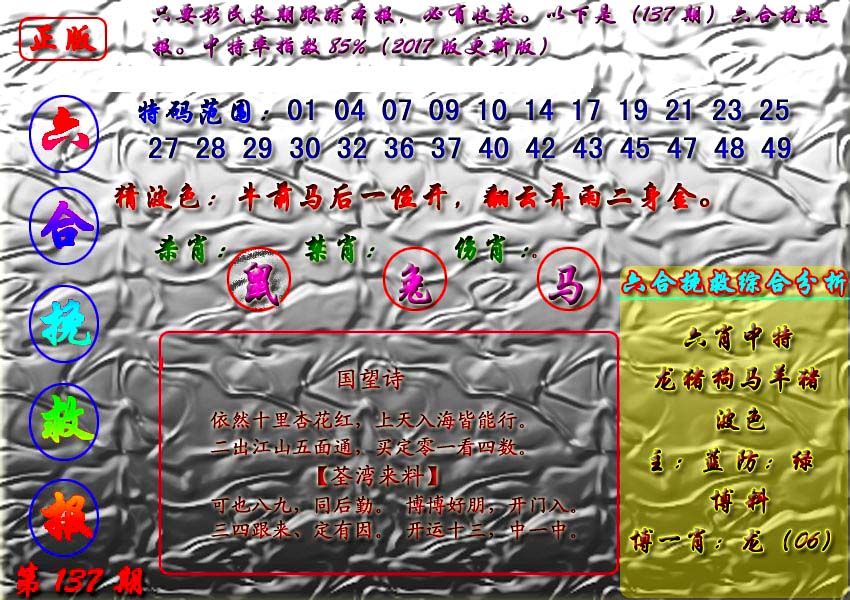 正版
只要彩民长期跟踪本报，必有收获。以下是（137 期）六合挽救
报。中特率指数 85%（2017 版更新版）
六合挽救报
第 137 期
特码范围：01 04 07 09 10 14 17 19 21 23 25
27 28 29 30 32 36 37 40 42 43 45 47 48 49
猜波色：牛前马后一位开，翻云弄雨二身金。
杀肖：鼠 禁肖：兔 伤肖：马
国望诗
依然十里杏花红，上天入海皆能行。
二出江山五面通，买定零一看四数。
【荃湾来料】
可也八九，同后勤。 博博好朋，开门入。
三四跟来、定有因。 开运十三，中一中。
六合挽救综合分析
六肖中特
龙猪狗马羊猪
波色
主：蓝防：绿
博料
博一肖：龙（06）